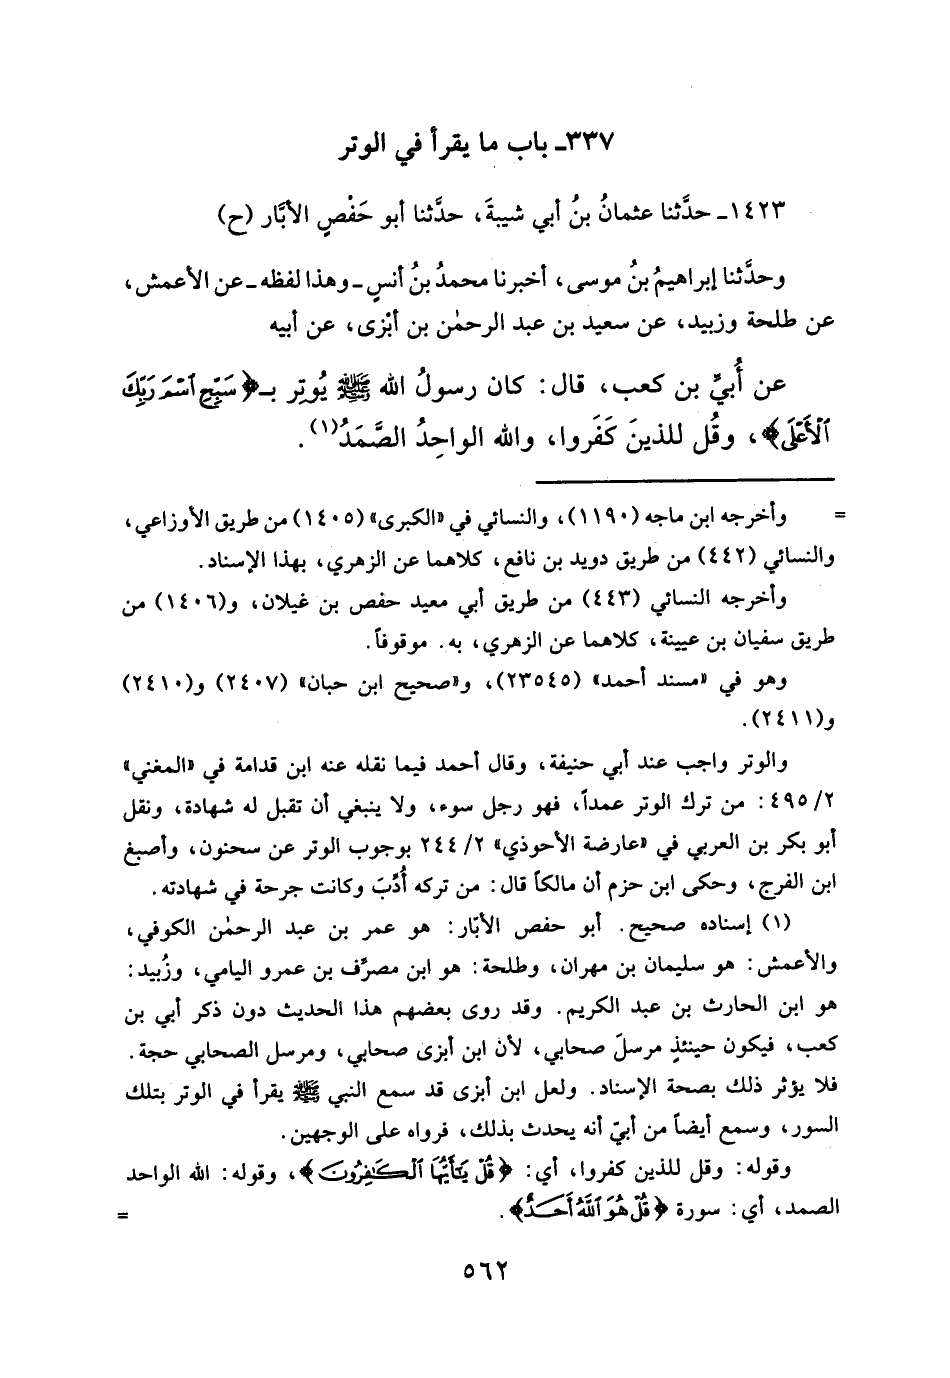 ٣٣٧ـ باب ما يقرأ في الوتر
١٤٢٣ـ حدَّثنا عثمانُ بنُ أبي شيبةَ، حدَّثنا أبو حَفْصٍ الأبَّار (ح)
وحدَّثنا إبراهيمُ بنُ موسى، أخبرنا محمدُ بنُ أنسٍ ـ وهذا لفظه ـ عن الأعمش،
عن طلحة وزبيد، عن سعيد بن عبد الرحمٰن بن أبْزى، عن أبيه
عن أُبيِّ بن كعب، قال: كان رسولُ الله ﷺ يُوتِر بـ﴿سَبِّحِ ٱسْمَ رَبِّكَ
ٱلْأَعْلَى﴾، وقُل للذينَ كَفَروا، والله الواحِدُ الصَّمَدُ(١).
= وأخرجه ابن ماجه (١١٩٠)، والنسائي في «الكبرى» (١٤٠٥) من طريق الأوزاعي،
والنسائي (٤٤٢) من طريق دويد بن نافع، كلاهما عن الزهري، بهذا الإسناد.
وأخرجه النسائي (٤٤٣) من طريق أبي معيد حفص بن غيلان، و(١٤٠٦) من
طريق سفيان بن عيينة، كلاهما عن الزهري، به. موقوفاً.
وهو في «مسند أحمد» (٢٣٥٤٥)، و«صحيح ابن حبان» (٢٤٠٧) و(٢٤١٠)
و(٢٤١١).
والوتر واجب عند أبي حنيفة، وقال أحمد فيما نقله عنه ابن قدامة في «المغني»
٢/ ٤٩٥: من ترك الوتر عمداً، فهو رجل سوء، ولا ينبغي أن تقبل له شهادة، ونقل
أبو بكر بن العربي في «عارضة الأحوذي» ٢/ ٢٤٤ بوجوب الوتر عن سحنون، وأصبغ
ابن الفرج، وحكى ابن حزم أن مالكاً قال: من تركه أُدِّبَ وكانت جرحة في شهادته.
(١) إسناده صحيح. أبو حفص الأبّار: هو عمر بن عبد الرحمٰن الكوفي،
والأعمش: هو سليمان بن مهران، وطلحة: هو ابن مصرِّف بن عمرو اليامي، وزُبيد:
هو ابن الحارث بن عبد الكريم. وقد روى بعضهم هذا الحديث دون ذكر أبي بن
كعب، فيكون حينئذٍ مرسلَ صحابي، لأن ابن أبزى صحابي، ومرسل الصحابي حجة.
فلا يؤثر ذلك بصحة الإسناد. ولعل ابن أبزى قد سمع النبي ﷺ يقرأ في الوتر بتلك
السور، وسمع أيضاً من أبيّ أنه يحدث بذلك، فرواه على الوجهين.
وقوله: وقل للذين كفروا، أي: ﴿قُلْ يَٰٓأَيُّهَا ٱلْكَٰفِرُونَ﴾، وقوله: الله الواحد
الصمد، أي: سورة ﴿قُلْ هُوَ ٱللَّهُ أَحَدٌ﴾. =
٥٦٢